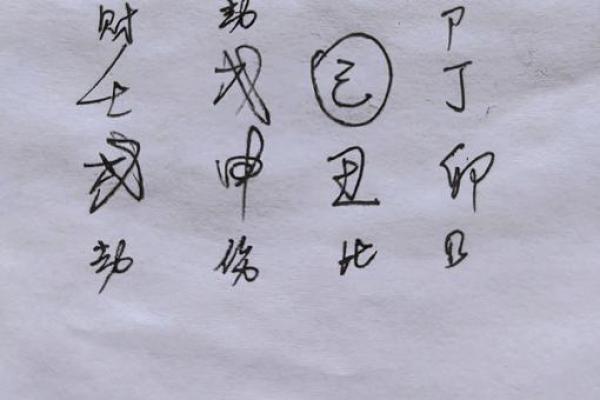 财 劫 卩
壬 戊 己 丁
戌 申 丑 卯
劫 伤 比